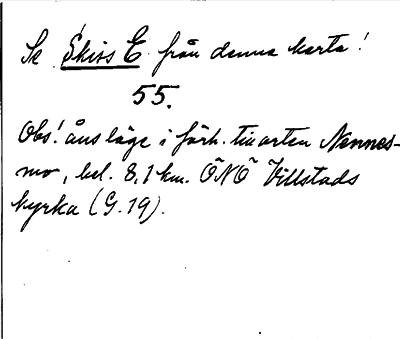 Se Skiss E från denna karta!
55.
Obs! åns läge i förh. till orten Nennes-
mo, bel. 8,1 km. ÖNÖ Villstads
kyrka (G. 19).